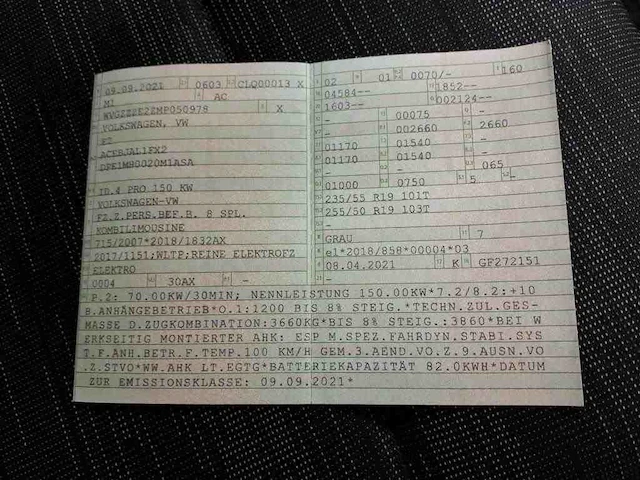 09.09.2021 0603 CLQ00013 X
M1 AC
WVGZZZE2ZMP050978 X
VOLKSWAGEN, VW
E2
ACEBJAL1FX2
ID.4 PRO 150 KW
VOLKSWAGEN-VW
FZ.Z.PERS.BEF.B. 8 SPL.
KOMBILIMOUSINE
715/2007*2018/1832AX
2017/1151;WLTP;REINE ELEKTROFZ
ELEKTRO
0004 30AX -
02 01 0070/- 160
04584-- 1852--
1603-- 002124--
- 00075 -
- 002660 2660
01170 01540 -
01170 01540 -
- - 065
01000 0750 5 -
235/55 R19 101T
255/50 R19 103T
-
GRAU 7
e1*2018/858*00004*03
08.04.2021 K GF272151
P.2: 70.00KW/30MIN; NENNLEISTUNG 150.00KW*7.2/8.2:+10
B.ANHÄNGEBETRIEB*O.1:1200 BIS 8% STEIG.*TECHN.ZUL.GES-
MASSE D.ZUGKOMBINATION:3660KG*BIS 8% STEIG.:3860*BEI W
ERKSEITIG MONTIERTER AHK: ESP M.SPEZ.FAHRDYN.STABI.SYS
T.F.ANH.BETR.F.TEMP.100 KM/H GEM.3.AEND.VO.Z.9.AUSN.VO
.Z.STVO*WW.AHK LT.EGTG*BATTERIEKAPAZITÄT 82.0KWH*DATUM
ZUR EMISSIONSKLASSE: 09.09.2021*